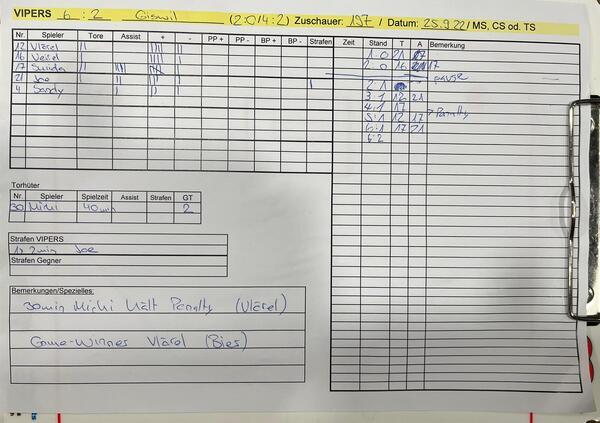 VIPERS 6 : 2 Giswil (2:0/4:2) Zuschauer: 197 / Datum: 25.9.22 / MS, CS od. TS
Nr. Spieler Tore Assist + - PP + PP - BP + BP - Strafen
12
16
17
21 Joe
4 Sandy
Zeit Stand T A Bemerkung
1:0 21 17
2:0 16
2:1
3:1 12 21
4:1 17 Penalty
5:1 12 17
6:1 17 21
6:2
Torhüter
Nr. Spieler Spielzeit Assist Strafen GT
30 Michi 40min 2
Strafen VIPERS
1x 2min Joe
Strafen Gegner
Bemerkungen/Spezielles:
30min Michi hält Penalty (Vlärel)
Game-Winner Vlärel (Bies)